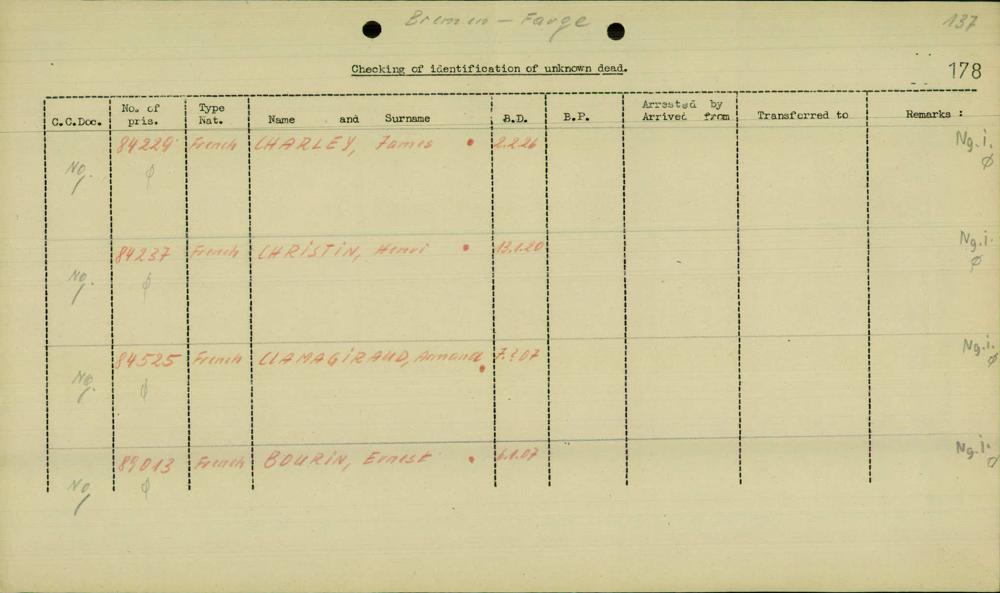 Bremen - Farge
137
Checking of identification of unknown dead.
178
C.C.Doc. No. of pris. Type Nat. Name and Surname B.D. B.P. Arrested by Arrived from Transferred to Remarks :
No. 84229 ϕ French CHARLEY, James • 2.2.26 Ng.i. ϕ
No. 84237 ϕ French CHRISTIN, Henri • 13.1.20 Ng.i. ϕ
No. 84525 ϕ French CLAMAGIRAUD, Armand • 7.?.07 Ng.i. ϕ
No. 89013 ϕ French BOURIN, Ernest • 6.1.07 Ng.i. ϕ